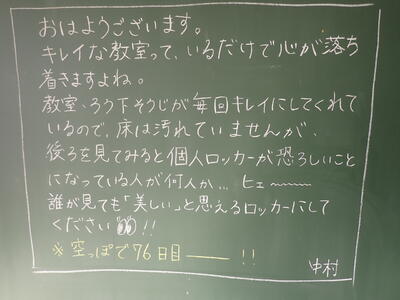 おはようございます。
キレイな教室って、いるだけで心が落ち
着きますよね。
教室、ろう下そうじが毎回キレイにしてくれて
いるので、床は汚れていませんが、
後ろを見てみると個人ロッカーが恐ろしいこと
になっている人が何人か… ヒェ〜〜〜
誰が見ても「美しい」と思えるロッカーにして
ください!!
※空っぽで76日目――!!
中村